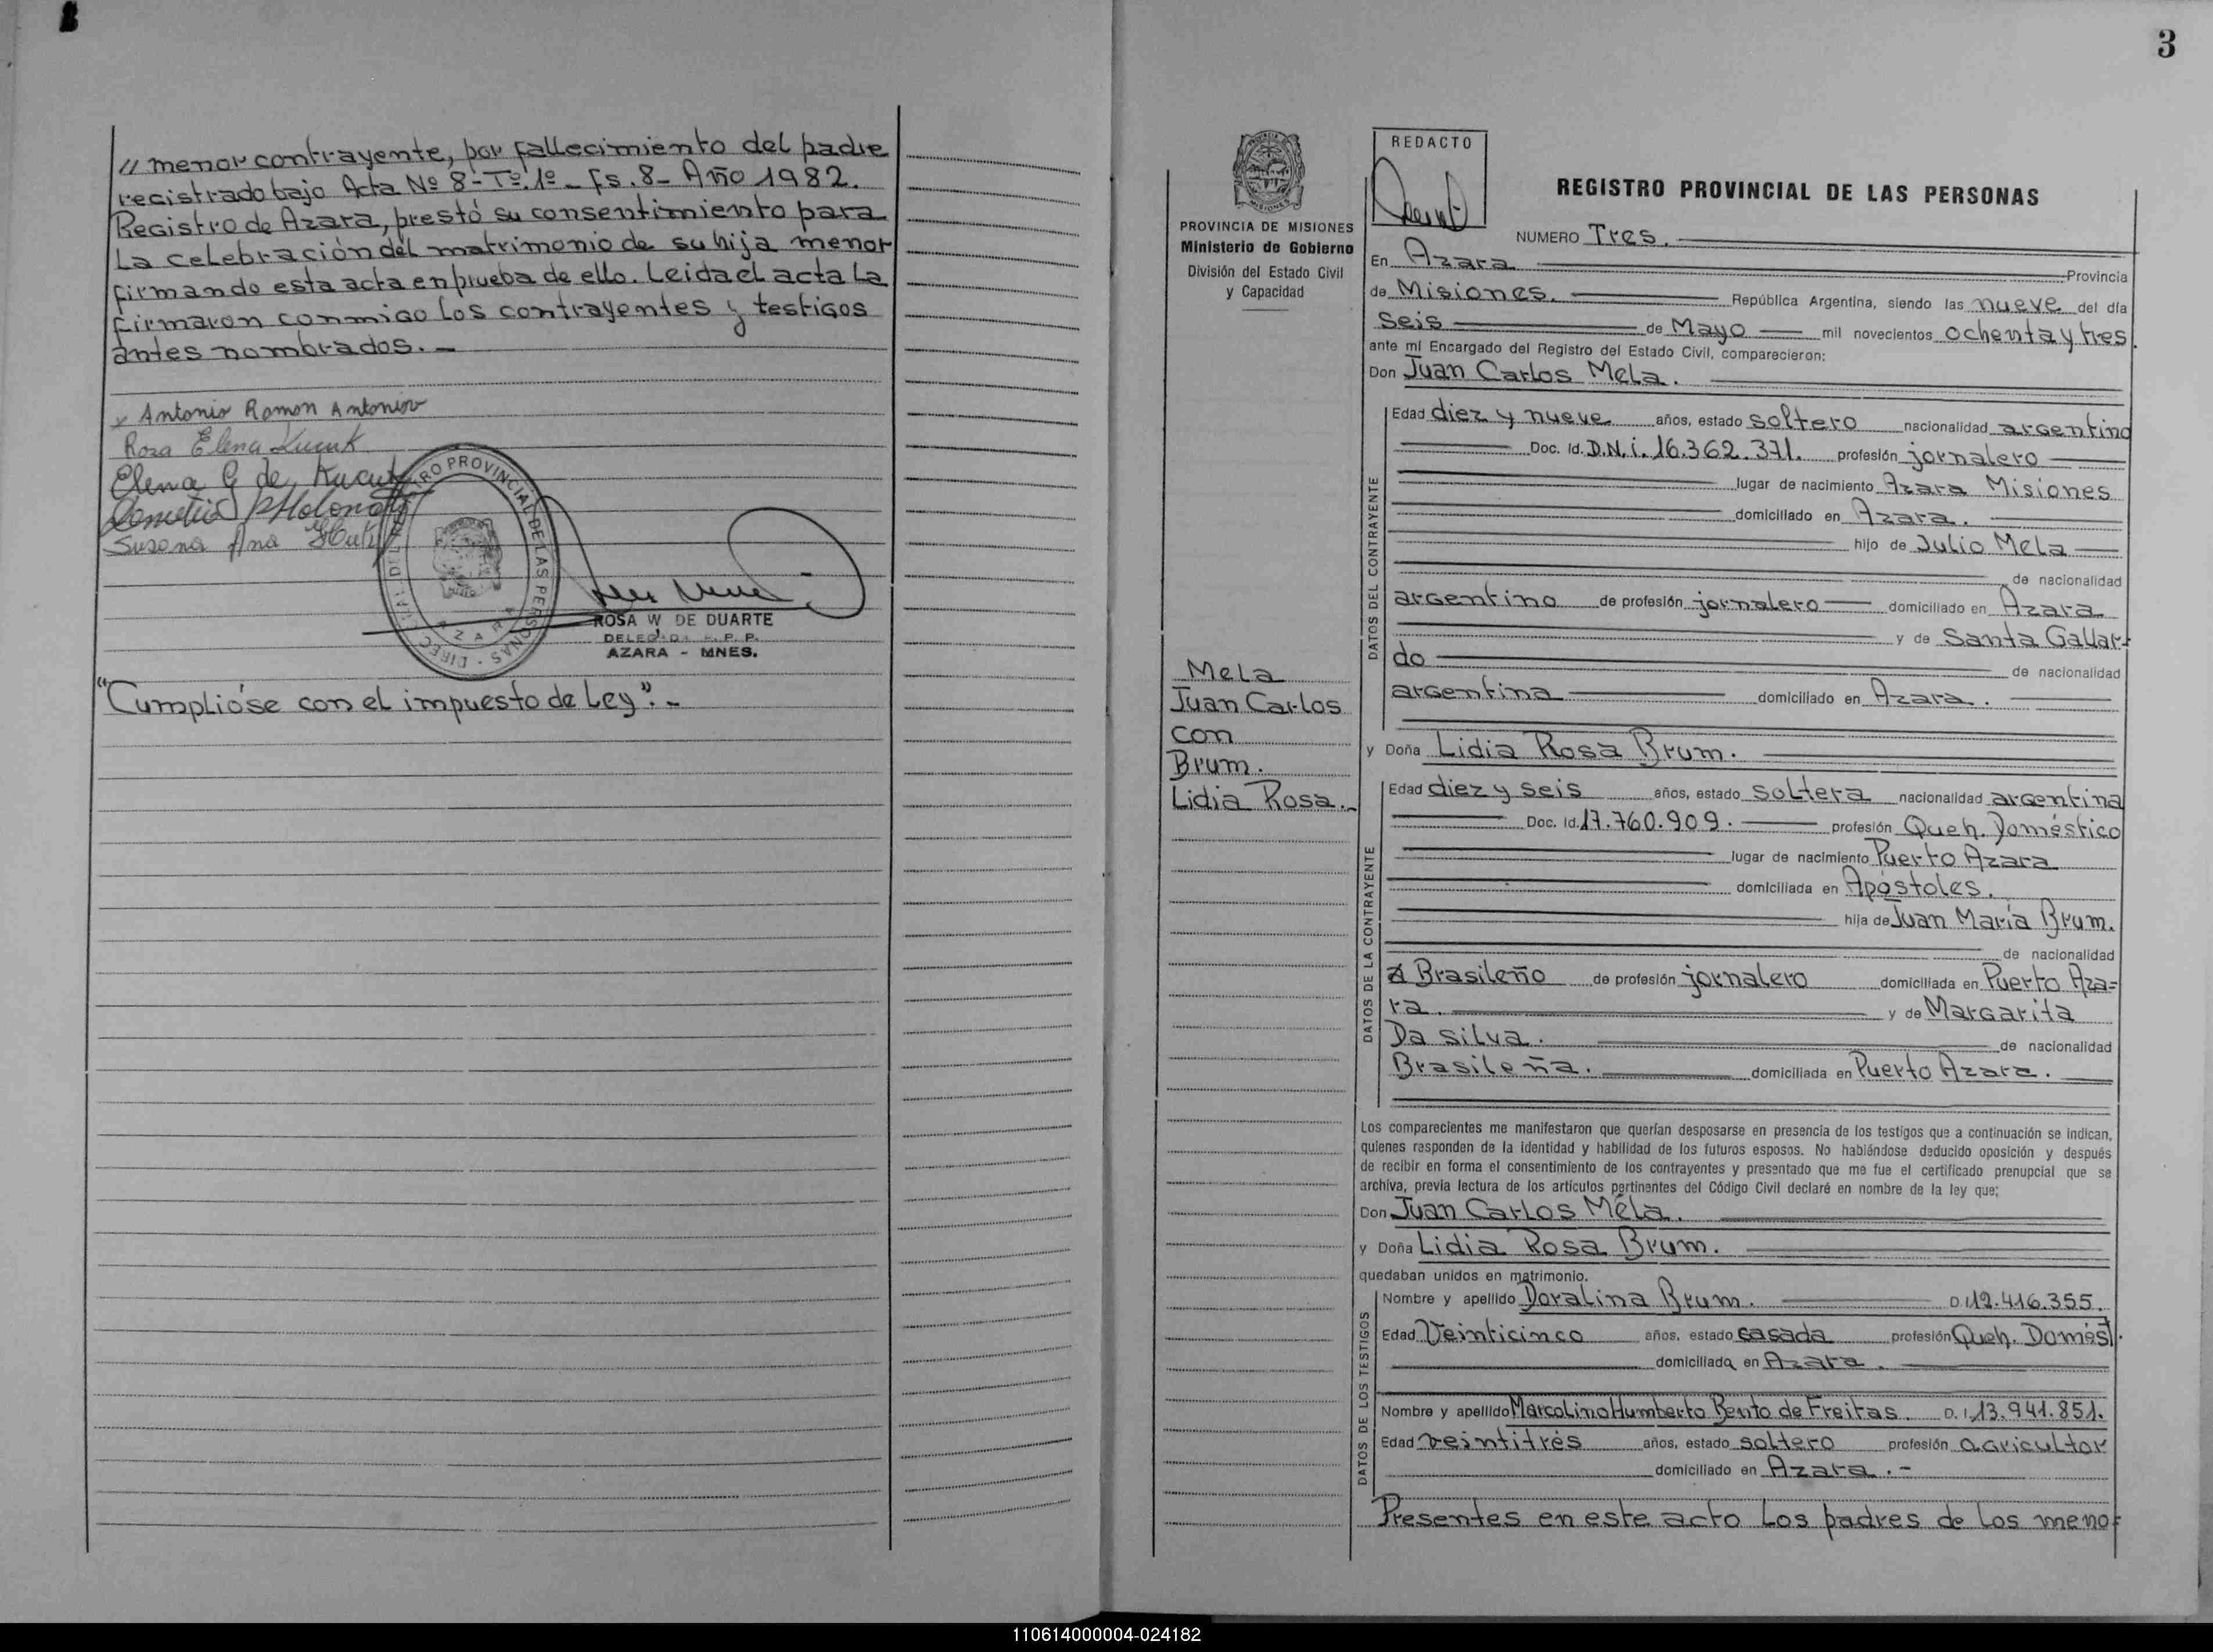 // menor contrayente, por fallecimiento del padre
registrado bajo Acta Nº 8- Tº. 1º- Fs. 8- Año 1982.
Registro de Azara, prestó su consentimiento para
la celebración del matrimonio de su hija menor
firmando esta acta en prueba de ello. Leida el acta la
firmaron conmigo los contrayentes y testigos
antes nombrados.-
x Antonio Ramon Antonio
Rosa Elena Kucuk
Elena G de Kucuk
Susana Ana
ROSA W DE DUARTE
AZARA - MNES.
"Cumplióse con el impuesto de Ley".-
3
PROVINCIA DE MISIONES
Ministerio de Gobierno
División del Estado Civil
y Capacidad
Mela
Juan Carlos
con
Brum.
Lidia Rosa.-
REDACTO
REGISTRO PROVINCIAL DE LAS PERSONAS
NUMERO Tres.
En Azara Provincia
de Misiones. República Argentina, siendo las nueve del día
Seis de Mayo mil novecientos ochenta y tres.
ante mí Encargado del Registro del Estado Civil, comparecieron:
Don Juan Carlos Mela.
DATOS DEL CONTRAYENTE
Edad diez y nueve años, estado soltero nacionalidad argentino
Doc. Id. D.N.i. 16.362.371. profesión jornalero
lugar de nacimiento Azara Misiones
domiciliado en Azara.
hijo de Julio Mela
de nacionalidad
argentino de profesión jornalero domiciliado en Azara
y de Santa Gallar-
do
de nacionalidad
argentina domiciliado en Azara.
y Doña Lidia Rosa Brum.
DATOS DE LA CONTRAYENTE
Edad diez y seis años, estado soltera nacionalidad argentina
Doc. Id. 17.760.909. profesión Queh. Doméstico
lugar de nacimiento Puerto Azara
domiciliada en Apóstoles.
hija de Juan María Brum.
de nacionalidad
Brasileño de profesión jornalero domiciliada en Puerto Aza=
ra. y de Margarita
Da silva. de nacionalidad
Brasileña. domiciliada en Puerto Azara.
Los comparecientes me manifestaron que querían desposarse en presencia de los testigos que a continuación se indican,
quienes responden de la identidad y habilidad de los futuros esposos. No habiéndose deducido oposición y después
de recibir en forma el consentimiento de los contrayentes y presentado que me fue el certificado prenupcial que se
archiva, previa lectura de los artículos pertinentes del Código Civil declaré en nombre de la ley que;
Don Juan Carlos Mela.
y Doña Lidia Rosa Brum.
quedaban unidos en matrimonio.
DATOS DE LOS TESTIGOS
Nombre y apellido Doralina Brum. D.I. 12.416.355.
Edad Veinticinco años, estado casada profesión Queh. Domést.
domiciliada en Azara.
Nombre y apellido Marcolino Humberto Bento de Freitas. D. I. 13.941.851.
Edad veintitrés años, estado soltero profesión agricultor
domiciliado en Azara.-
Presentes en este acto los padres de los meno-
110614000004-024182